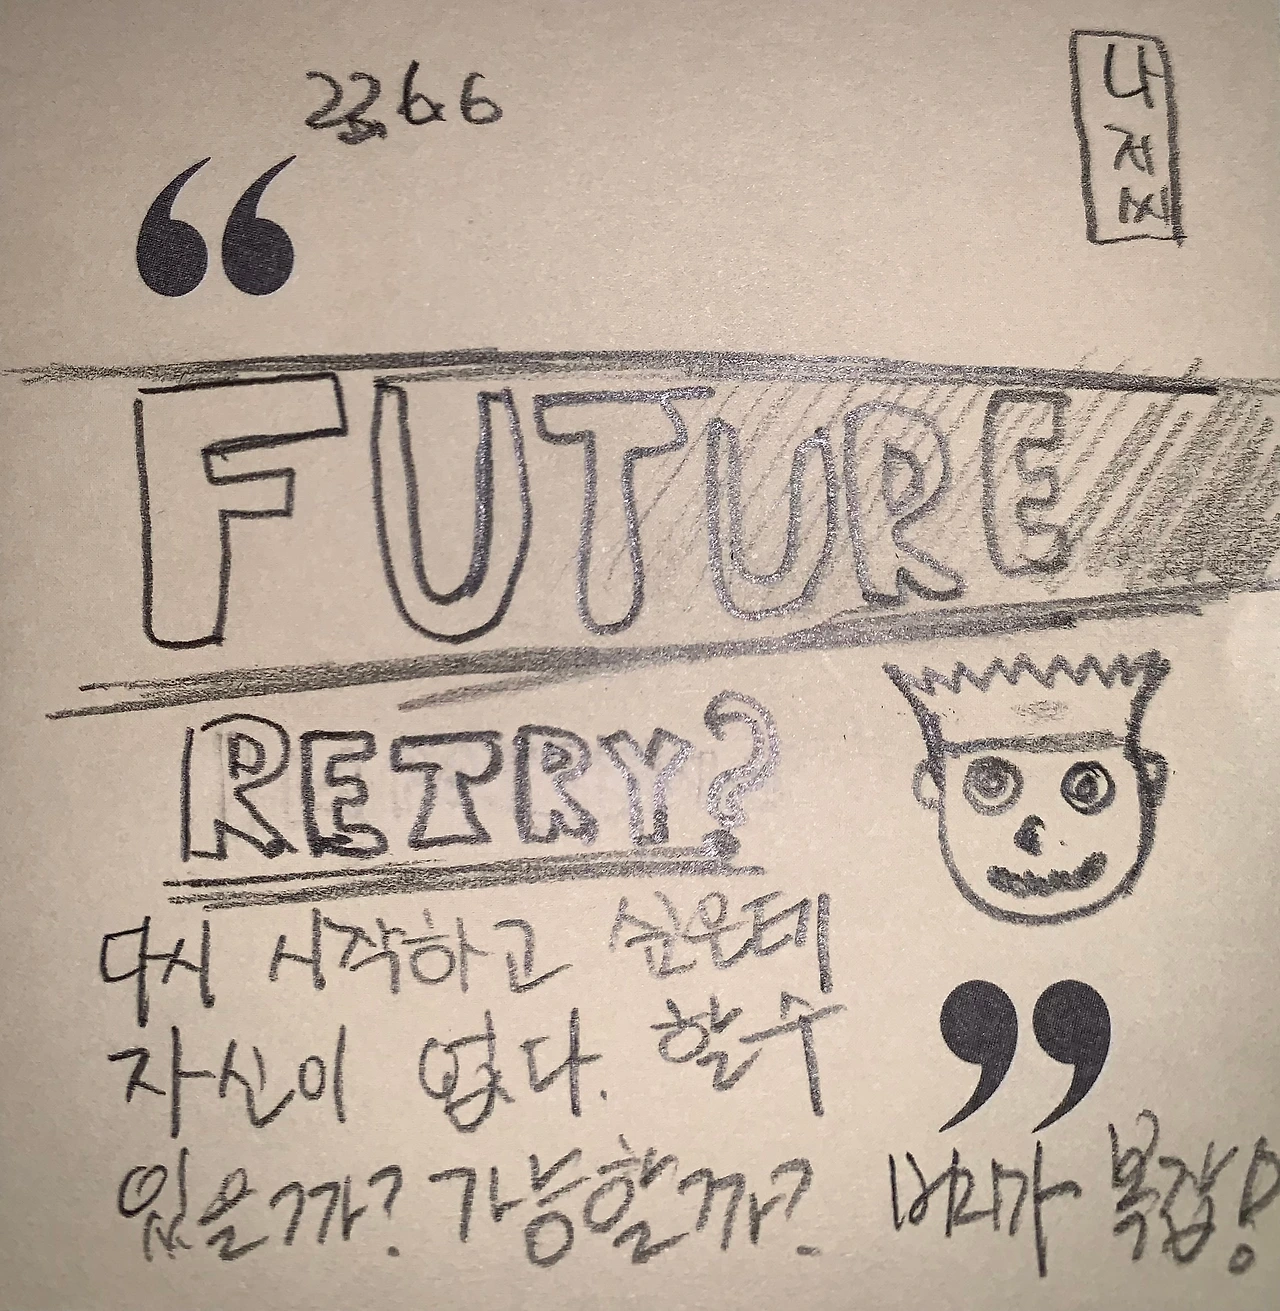 23.6.6
“
FUTURE
RETRY?
다시 시작하고 싶은데
자신이 없다. 할 수
있을까? 가능할까?
”
머리가 복잡!